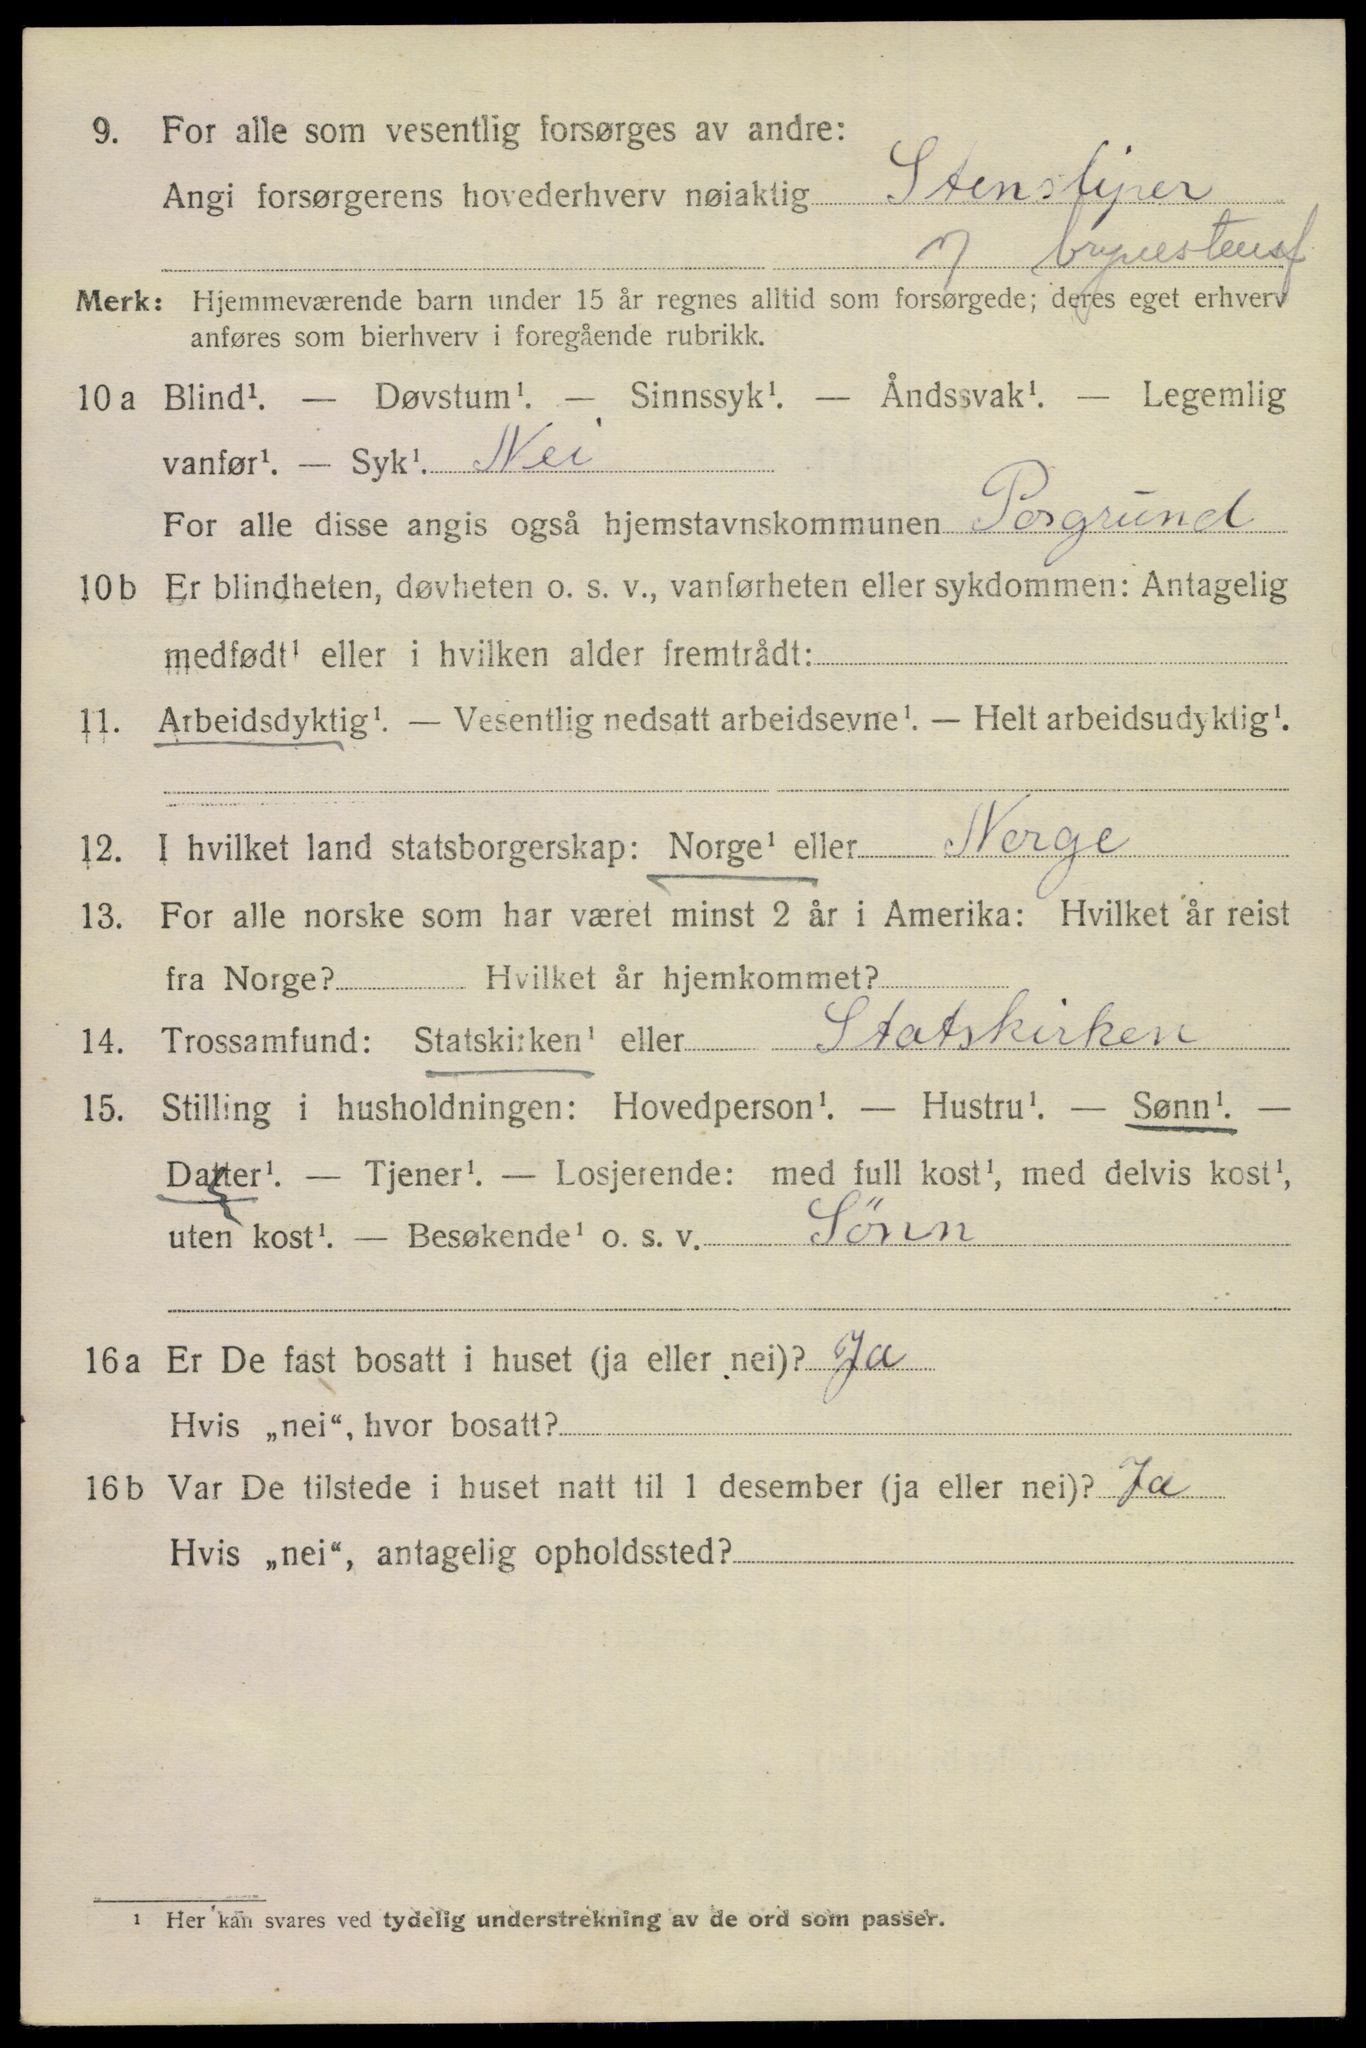 9. For alle som vesentlig forsørges av andre:
Angi forsørgerens hovederhverv nøiaktig Stensliper
Merk: Hjemmeværende barn under 15 år regnes alltid som forsørgede; deres eget erhverv
anføres som bierhverv i foregående rubrikk.
10 a Blind¹. — Døvstum¹. — Sinnssyk¹. — Åndssvak¹. — Legemlig
vanfør¹. — Syk¹. Nei
For alle disse angis også hjemstavnskommunen Porgrund
10 b Er blindheten, døvheten o. s. v., vanførheten eller sykdommen: Antagelig
medfødt¹ eller i hvilken alder fremtrådt:
11. Arbeidsdyktig¹. — Vesentlig nedsatt arbeidsevne¹. — Helt arbeidsudyktig¹.
12. I hvilket land statsborgerskap: Norge¹ eller Norge
13. For alle norske som har været minst 2 år i Amerika: Hvilket år reist
fra Norge? Hvilket år hjemkommet?
14. Trossamfund: Statskirken¹ eller Statskirken
15. Stilling i husholdningen: Hovedperson¹. — Hustru¹. — Sønn¹. —
Datter¹. — Tjener¹. — Losjerende: med full kost¹, med delvis kost¹,
uten kost¹. — Besøkende¹ o. s. v. Sönn
16 a Er De fast bosatt i huset (ja eller nei)? Ja
Hvis „nei“, hvor bosatt?
16 b Var De tilstede i huset natt til 1 desember (ja eller nei)? Ja
Hvis „nei“, antagelig opholdssted?
¹ Her kan svares ved tydelig understrekning av de ord som passer.